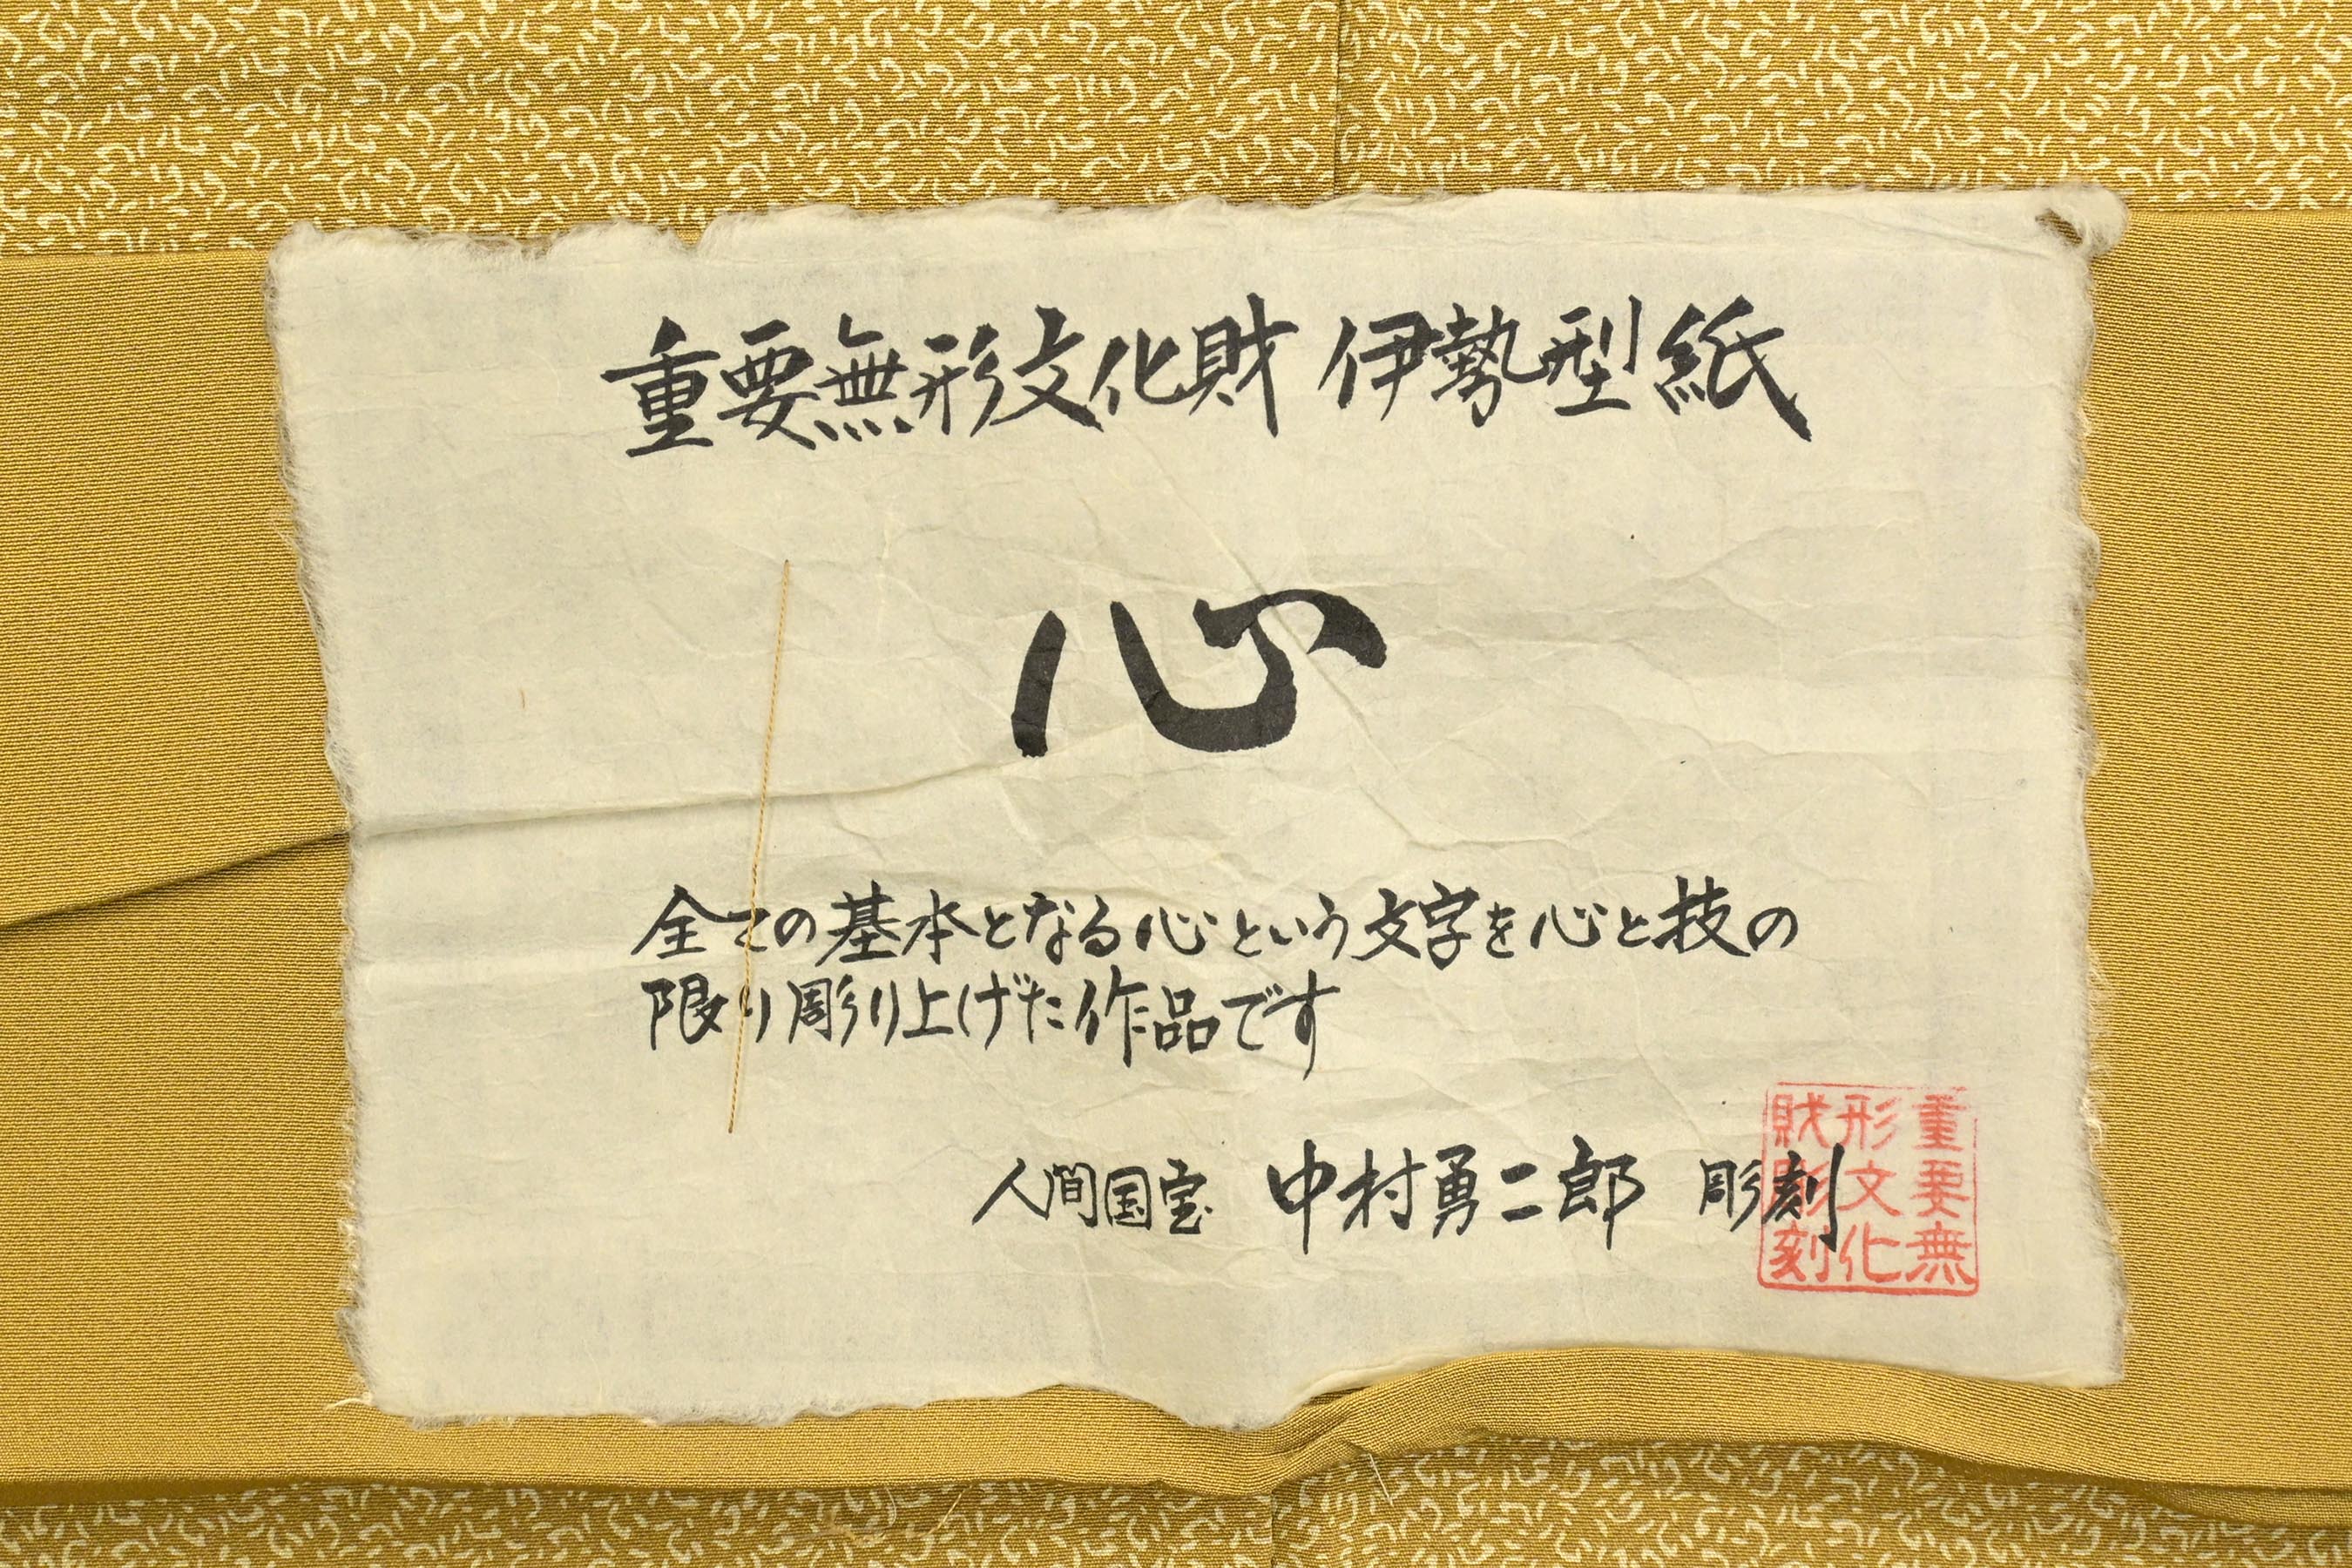 重要無形文化財 伊勢型紙
心
全ての基本となる心という文字を心と技の
限り彫り上げた作品です
人間国宝 中村勇二郎 彫刻
重要無
形文化
財彫刻